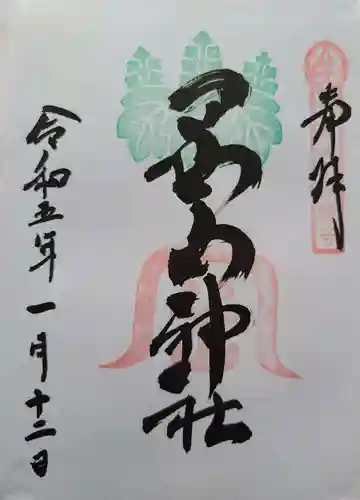 奉拝
山神社
令和五年一月十二日